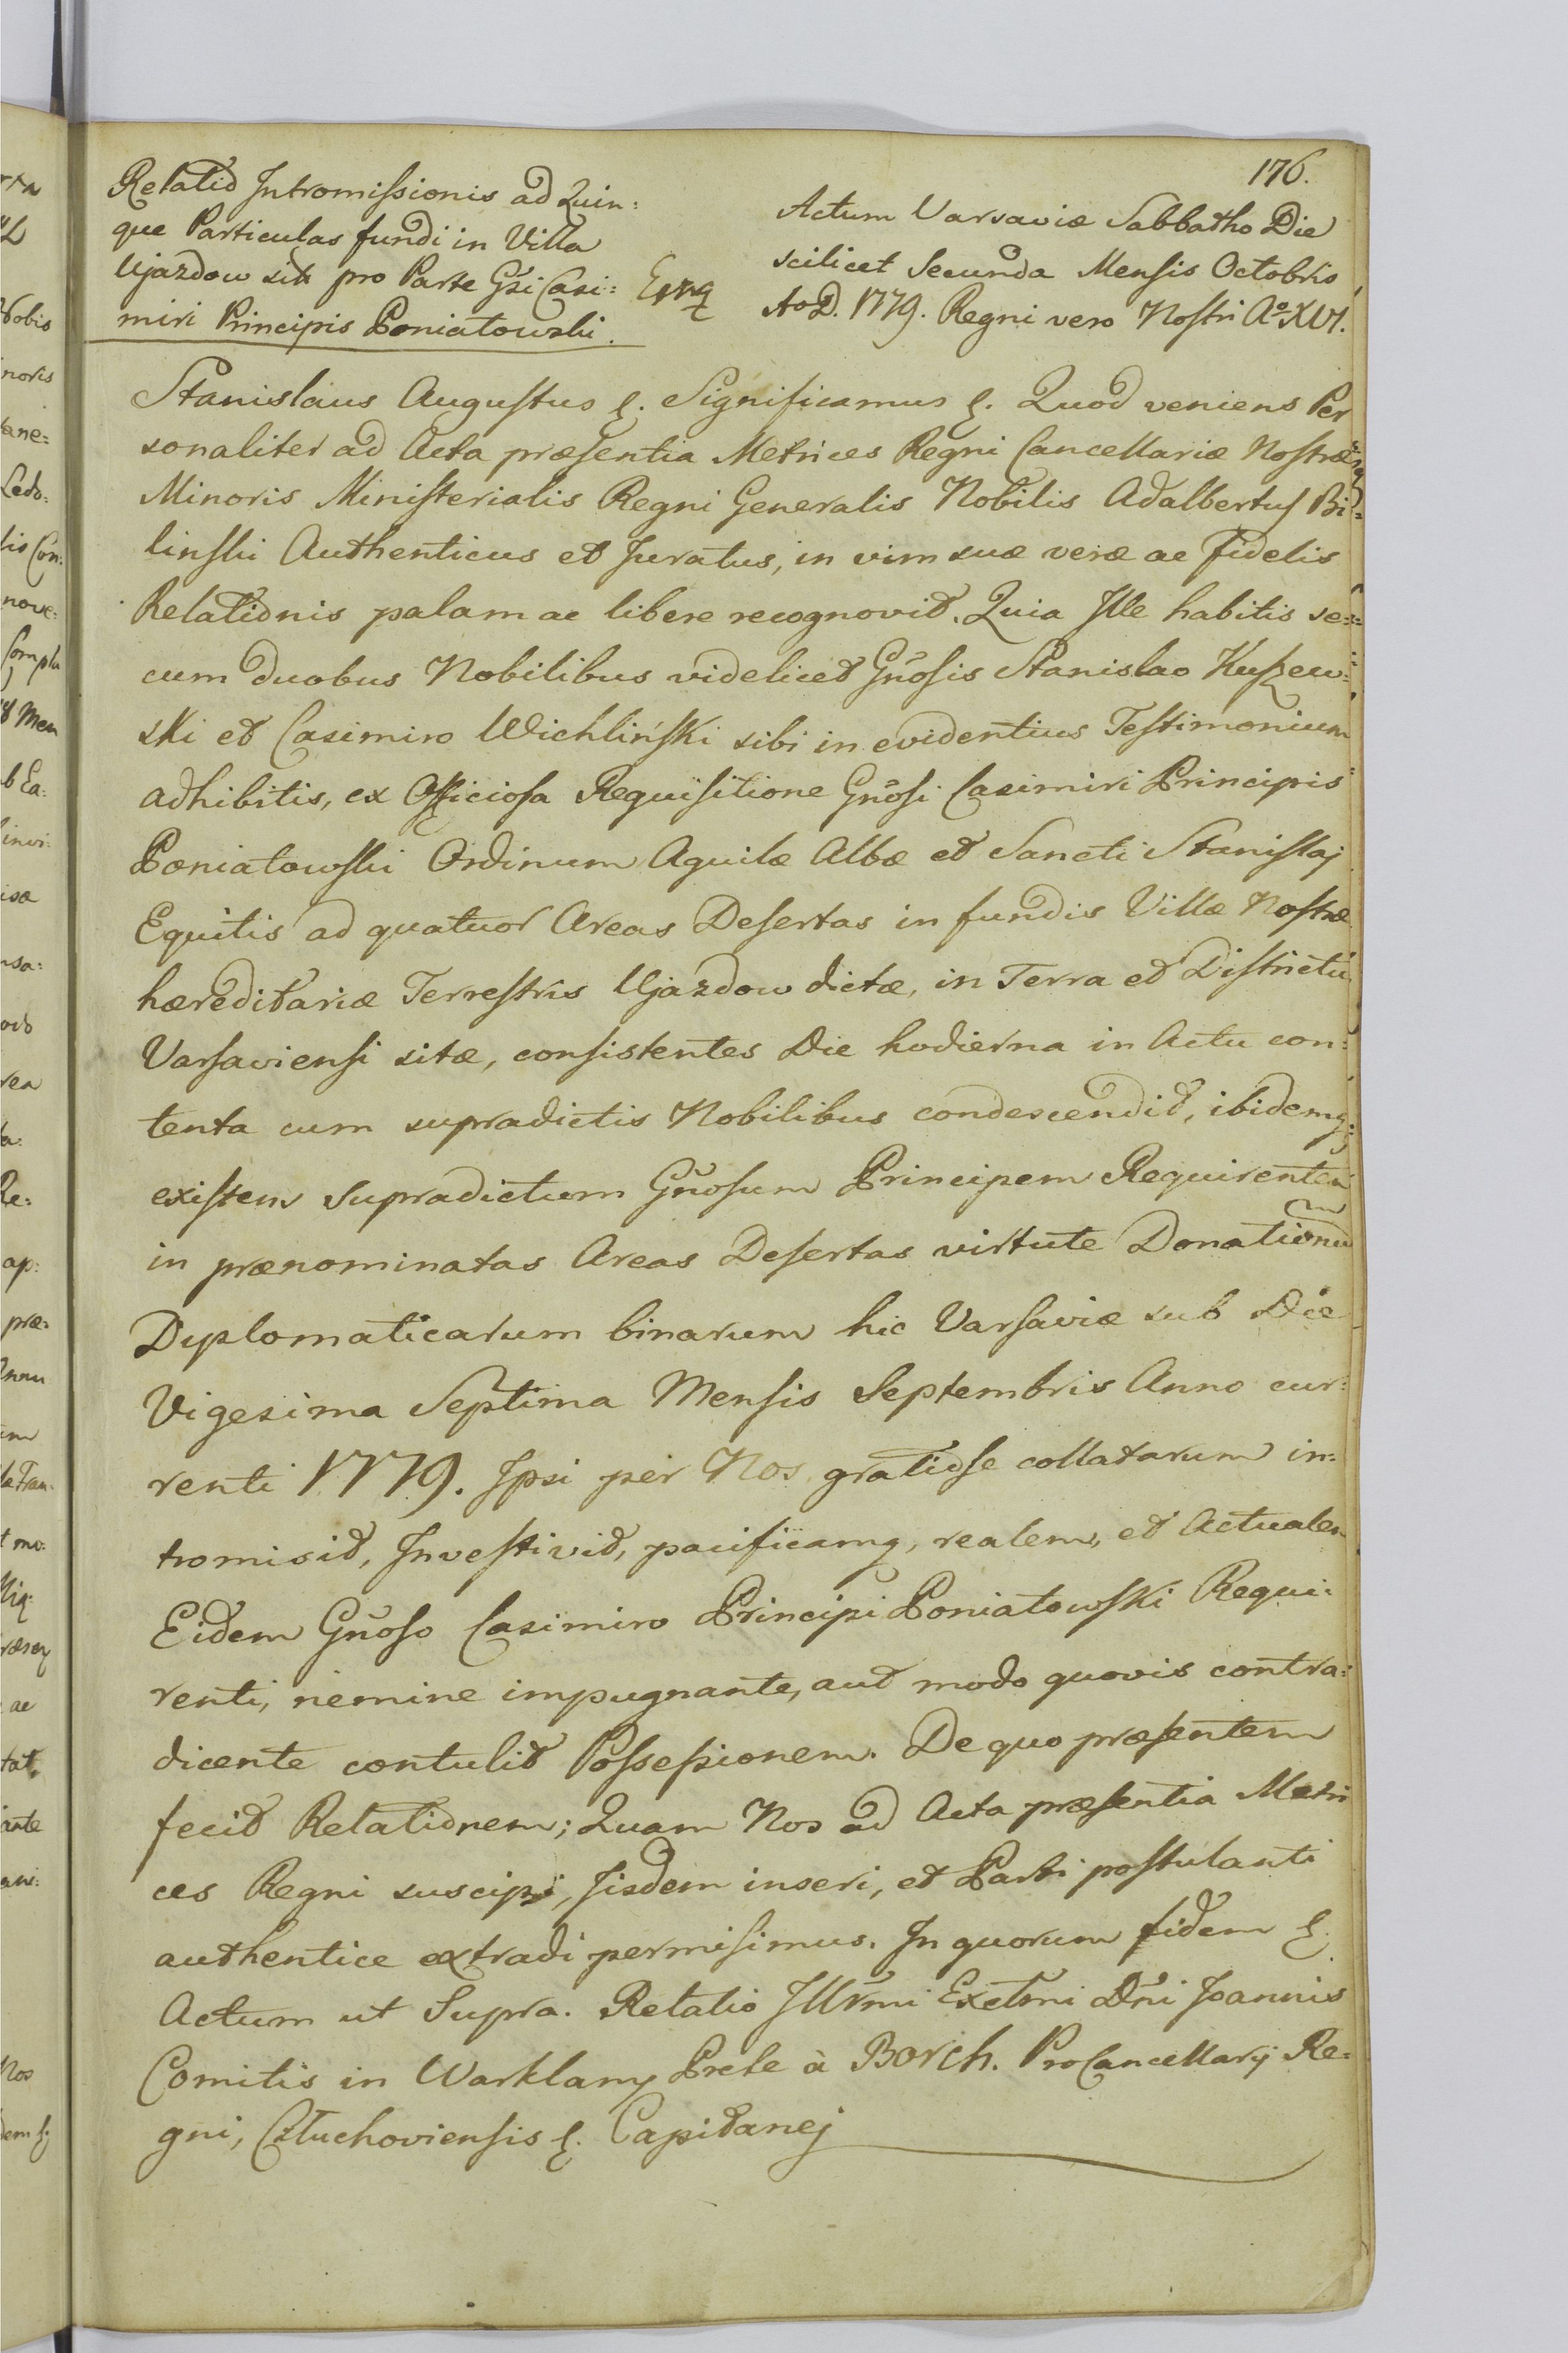 176.
Relatio Intromissionis ad Quin:
que Particulas fundi in Villa
Ujazdow sitt pro Parte Gsi Casi:
miri Principis Poniatowski.
Actum Varsaviæ Sabbatho Die
scilicet Secunda Mensis Octobris
AoD. 1779. Regni vero Nostri Ao XVI.
Stanislaus Augustus &. Significamus &. Quod veniens Per
sonaliter ad Acta præsentia Metrices Regni Cancellariæ Nostræ
Minoris Ministerialis Regni Generalis Nobilis Adalbertus Bi=
linski Authenticus et Juratus, in vim suæ veræ ac fidelis
Relationis palam ac libere recognovit. Quia Ille habitis se=
cum duobus Nobilibus videlicet Gnosis Stanislao Kuszew=
ski et Casimiro Wichliński sibi in evidentius Testimonium
adhibitis, ex Officiosa Requisitione Gnosi Casimiri Principis
Poniatowski Ordinum Aquilæ Albæ et Sancti Stanislaj
Equitis ad quatuor Areas Desertas in fundis Villæ Nostræ
hæreditariæ Terrestris Ujazdow dictæ, in Terra et Districtu
Varsaviensi sitæ, consistentes Die hodierna in Actu con:
tenta cum supradictis Nobilibus condescendit, ibidemq;
existens supradictum Gnosum Principem Requirentem
in prænominatas Areas Desertas virtute Donationu
Dyplomaticarum binarum hic Varsaviæ sub Die
Vigesima Septima Mensis Septembris Anno cur:
renti 1779. Ipsi per Nos gratiose collatarum in:
tromisit, Investivit, pacificamq, realem, et Actualem
Eidem Gnoso Casimiro Principi Poniatowski Requi:
renti, nemine impugnante, aut modo quovis contra:
dicente contulit Possessionem. De quo præsentem
fecit Relationem; Quam Nos ad Acta præsentia Metri
ces Regni suscipi, Iisdem inseri, et Parti postulanti
authentice extradi permisimus. In quorum fidem &.
Actum ut Supra. Relatio Illrmi Exctmi Dni Joannis
Comitis in Warklany Prele à Borch. ProCancellarij Re=
gni, Człuchoviensis &. Capitanej